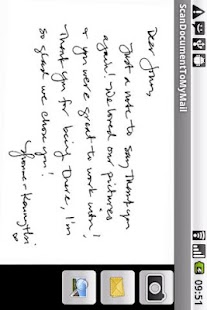 ScanDocumentToMyMail
09:51
Dear John,
Just a note to say Thank you
again! We loved our pictures
& you were great to work with!
Thank you for being There, I'm
so glad we chose you!